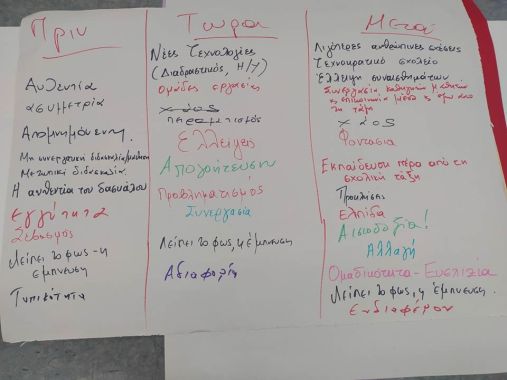 Πριν
Αυθεντία
ασυμμετρία
Απομνημόνευση.
Μη συνεργατική διδασκαλία/μάθηση
Μετωπική διδασκαλία.
Η αυθεντία του δασκάλου
Εγγύτητα
Σεβασμός
Λείπει το φως - η
έμπνευση
Τυπικότητα
Τώρα
Νέες Τεχνολογίες
(Διαδραστικός, Η/Υ)
ομάδες εργασίας
χάος
πειραματισμός
Έλλειψη
Απογοήτευση
Προβληματισμος
Συνεργασία
Λείπει το φως, η έμπνευση
Αδιαφορία
Μετά
Λιγότερες ανθρώπινες σχέσεις
Τεχνοκρατικό σχολείο
Έλλειψη συναισθημάτων
Συνεργασία καθηγητών μαθητών
κ επικοινωνία μέσα κ έξω από
τη τάξη
χάος
Φαντασία
Εκπαίδευση πέρα από τη
σχολική τάξη
Προκλήσεις
Ελπίδα
Αισιοδοξία!
Αλλαγή
Ομαδικότητα - Ευελιξία
Λείπει το φως, η έμπνευση.
Ενδιαφέρον